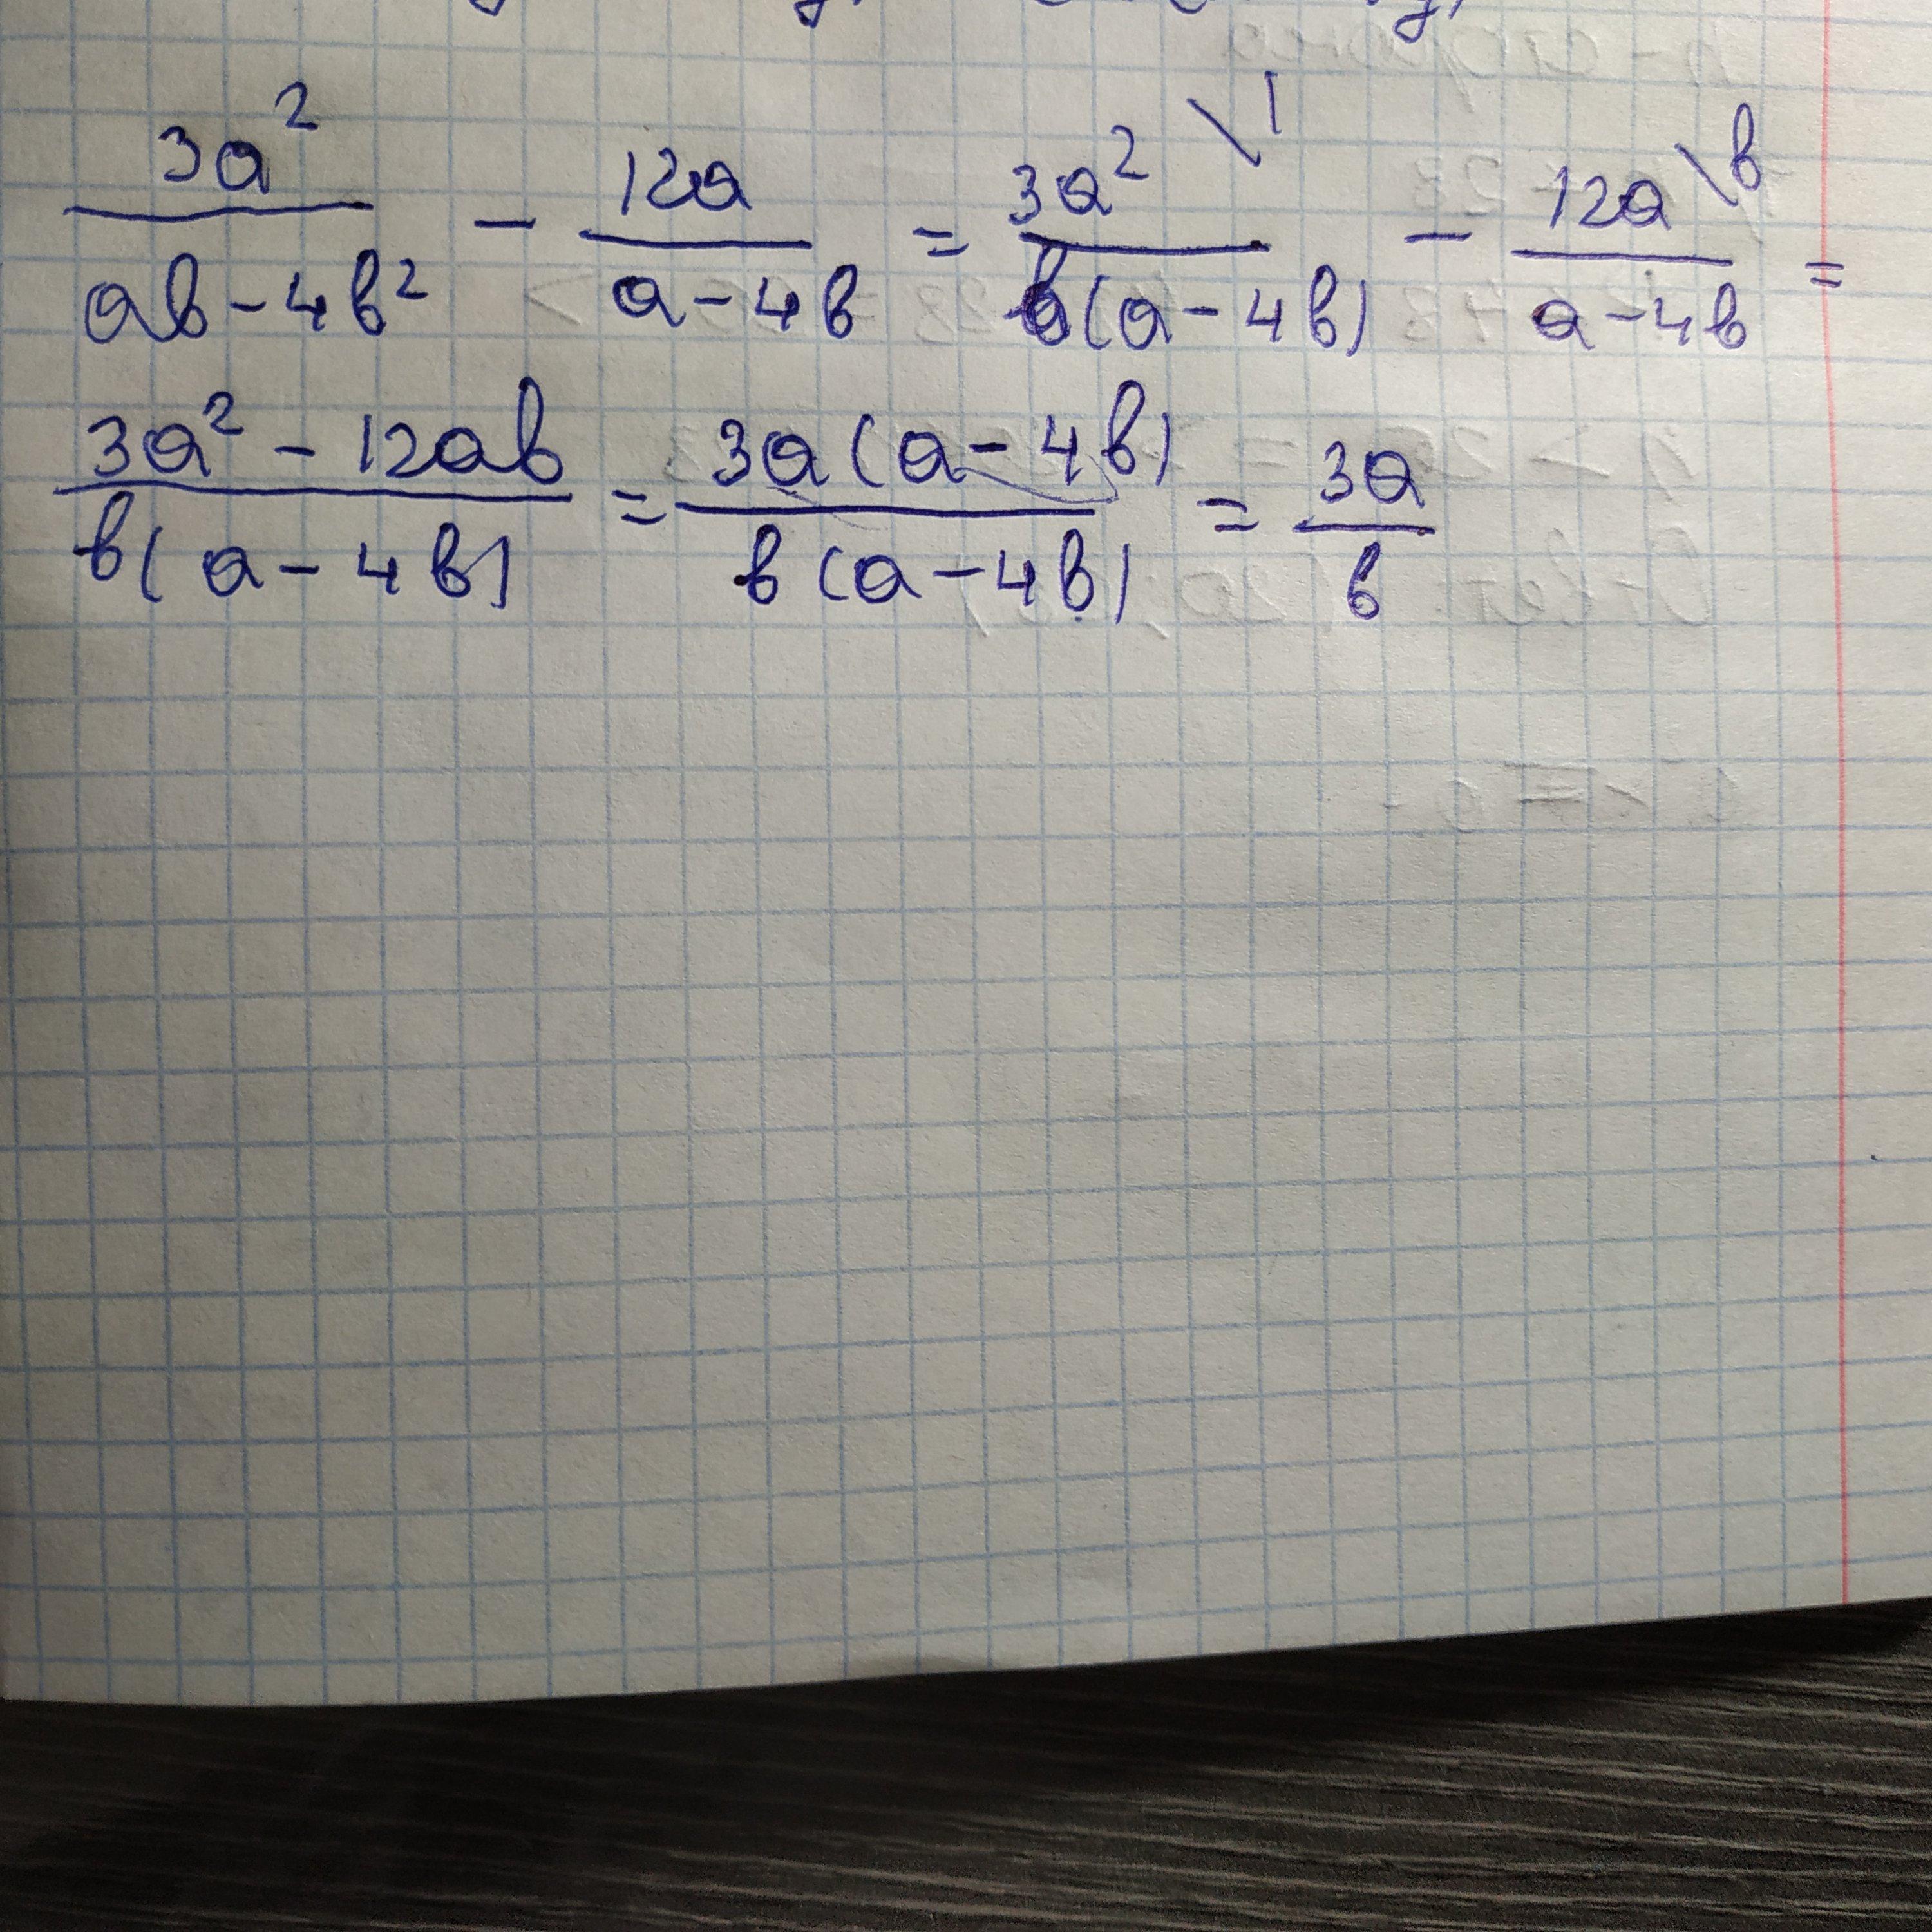 3a² / (ab - 4b²) - 12a / (a - 4b) = 3a² \1 / b(a - 4b) - 12a \b / (a - 4b) =
(3a² - 12ab) / b(a - 4b) = 3a(a - 4b) / b(a - 4b) = 3a / b